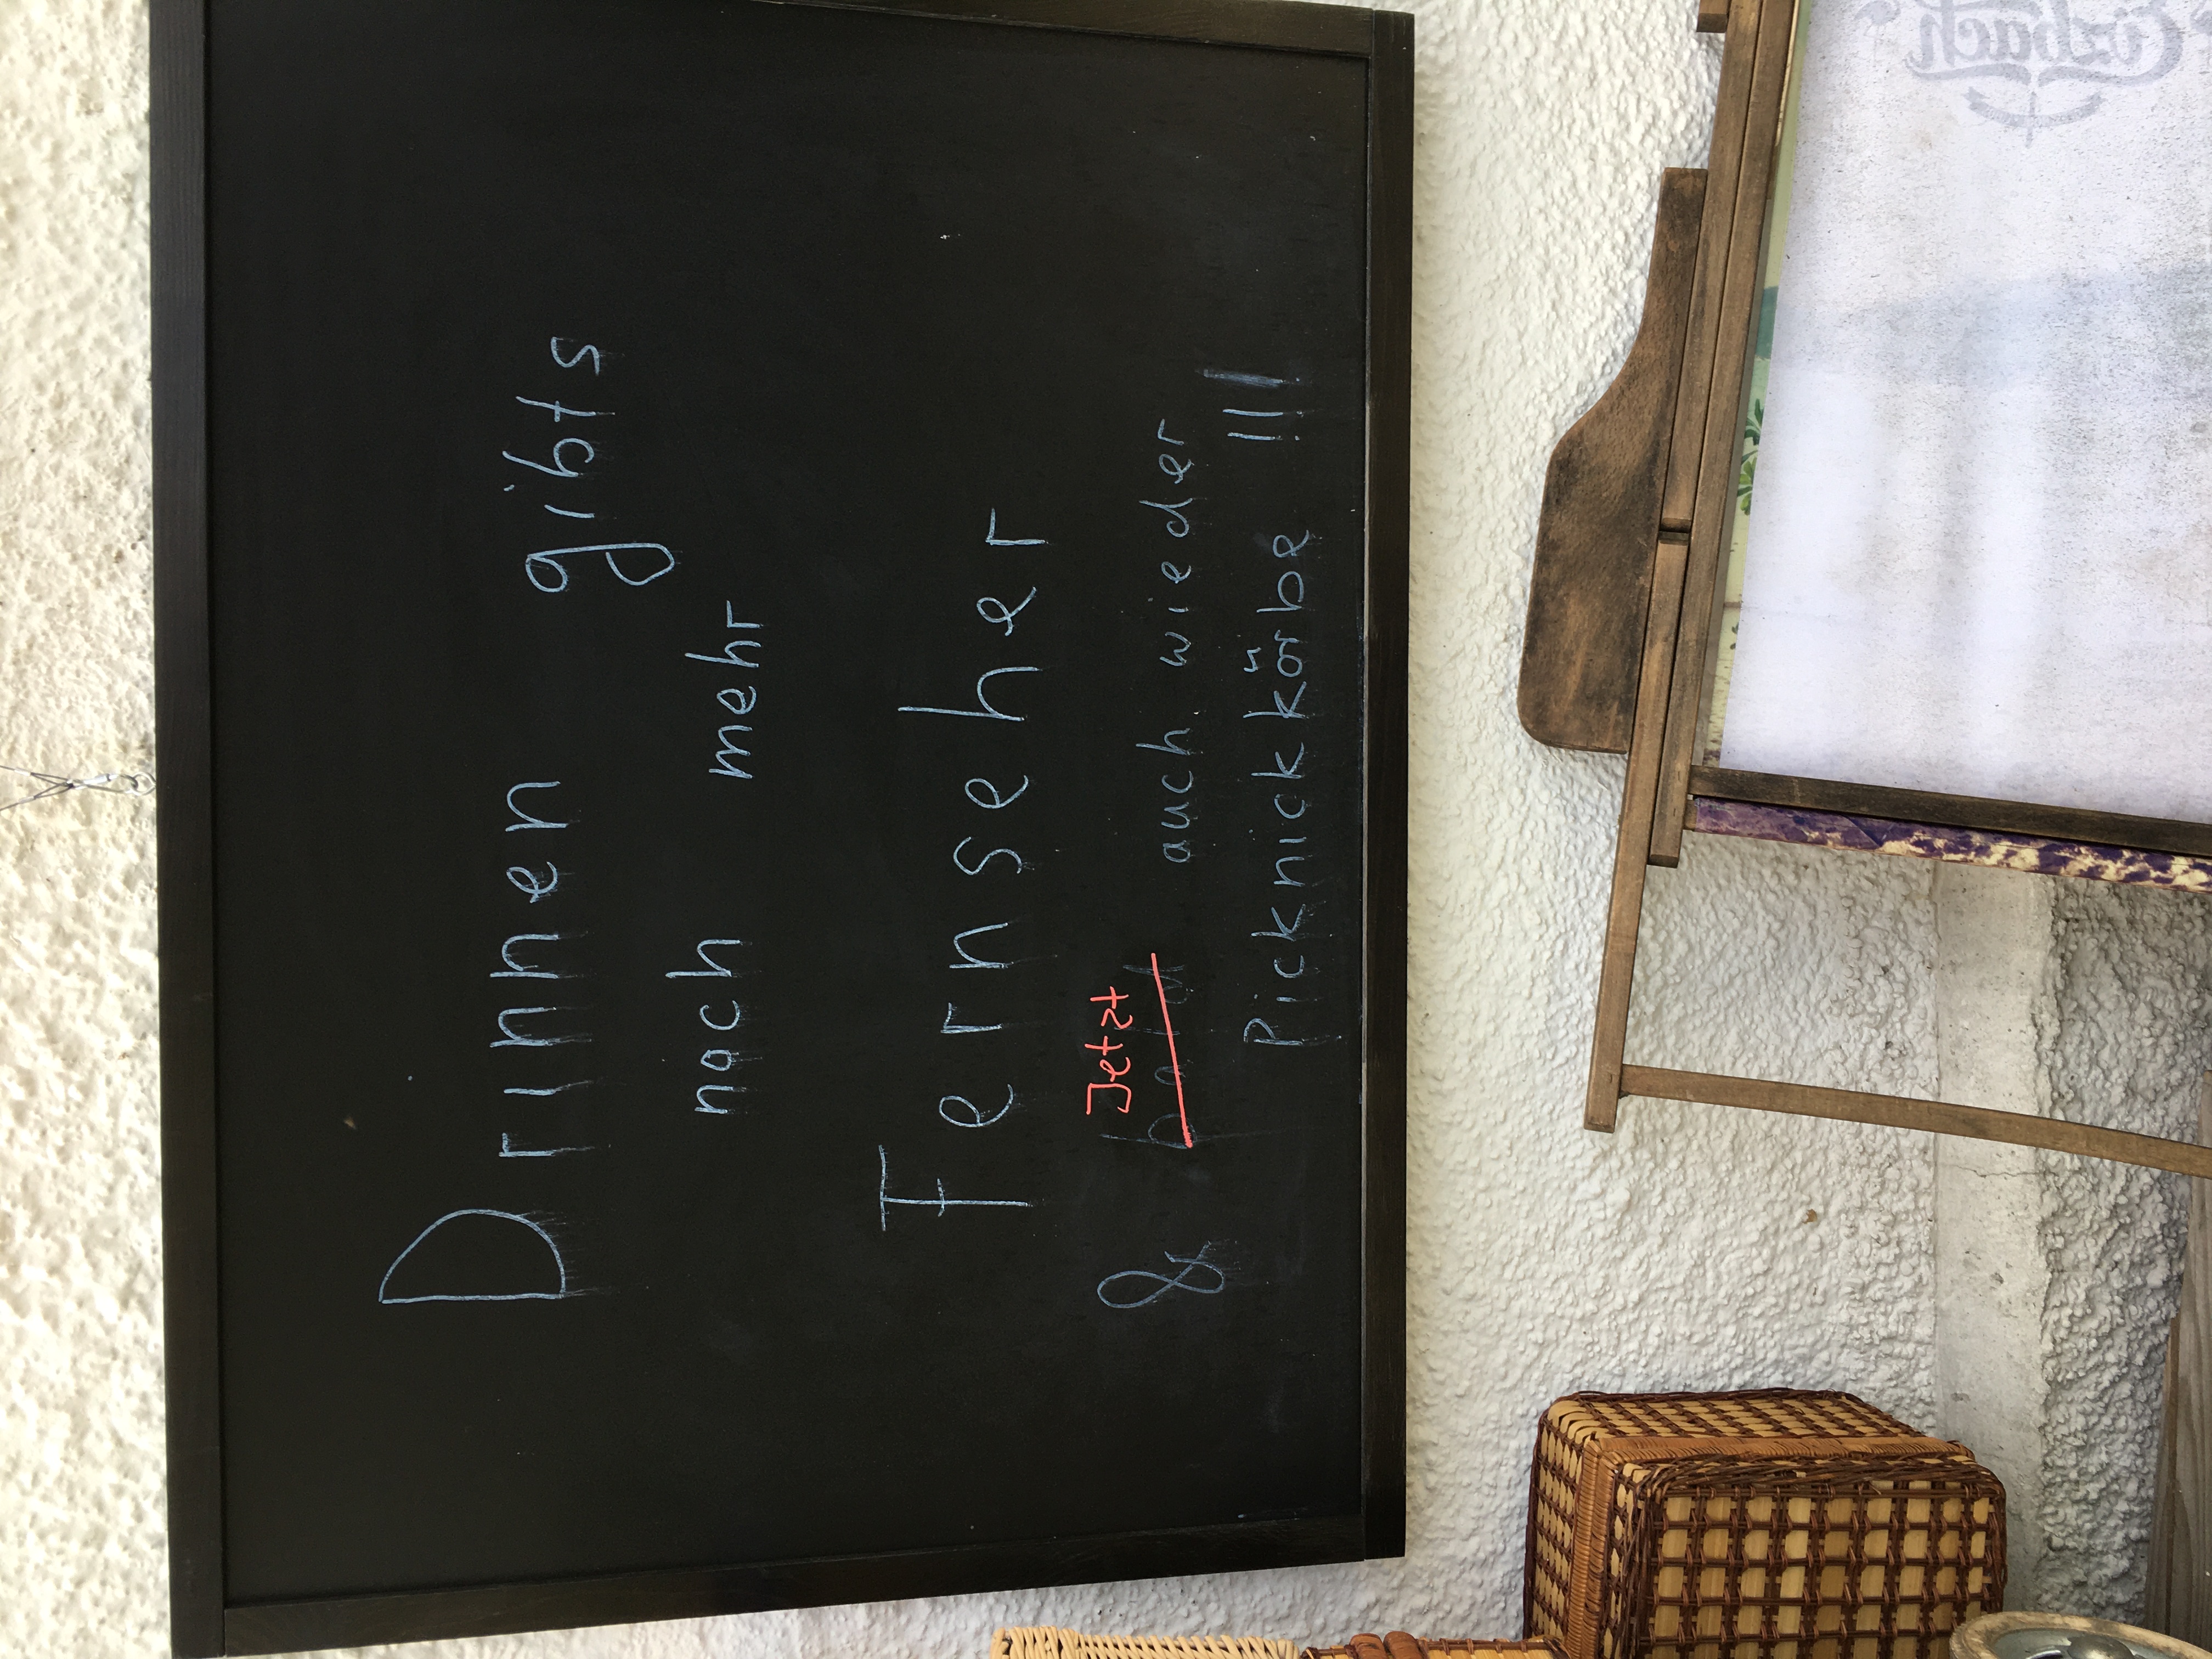 Drinnen gibts
noch mehr
Fernseher
Jetzt
& bald auch wieder
Picknickkörbe !!!